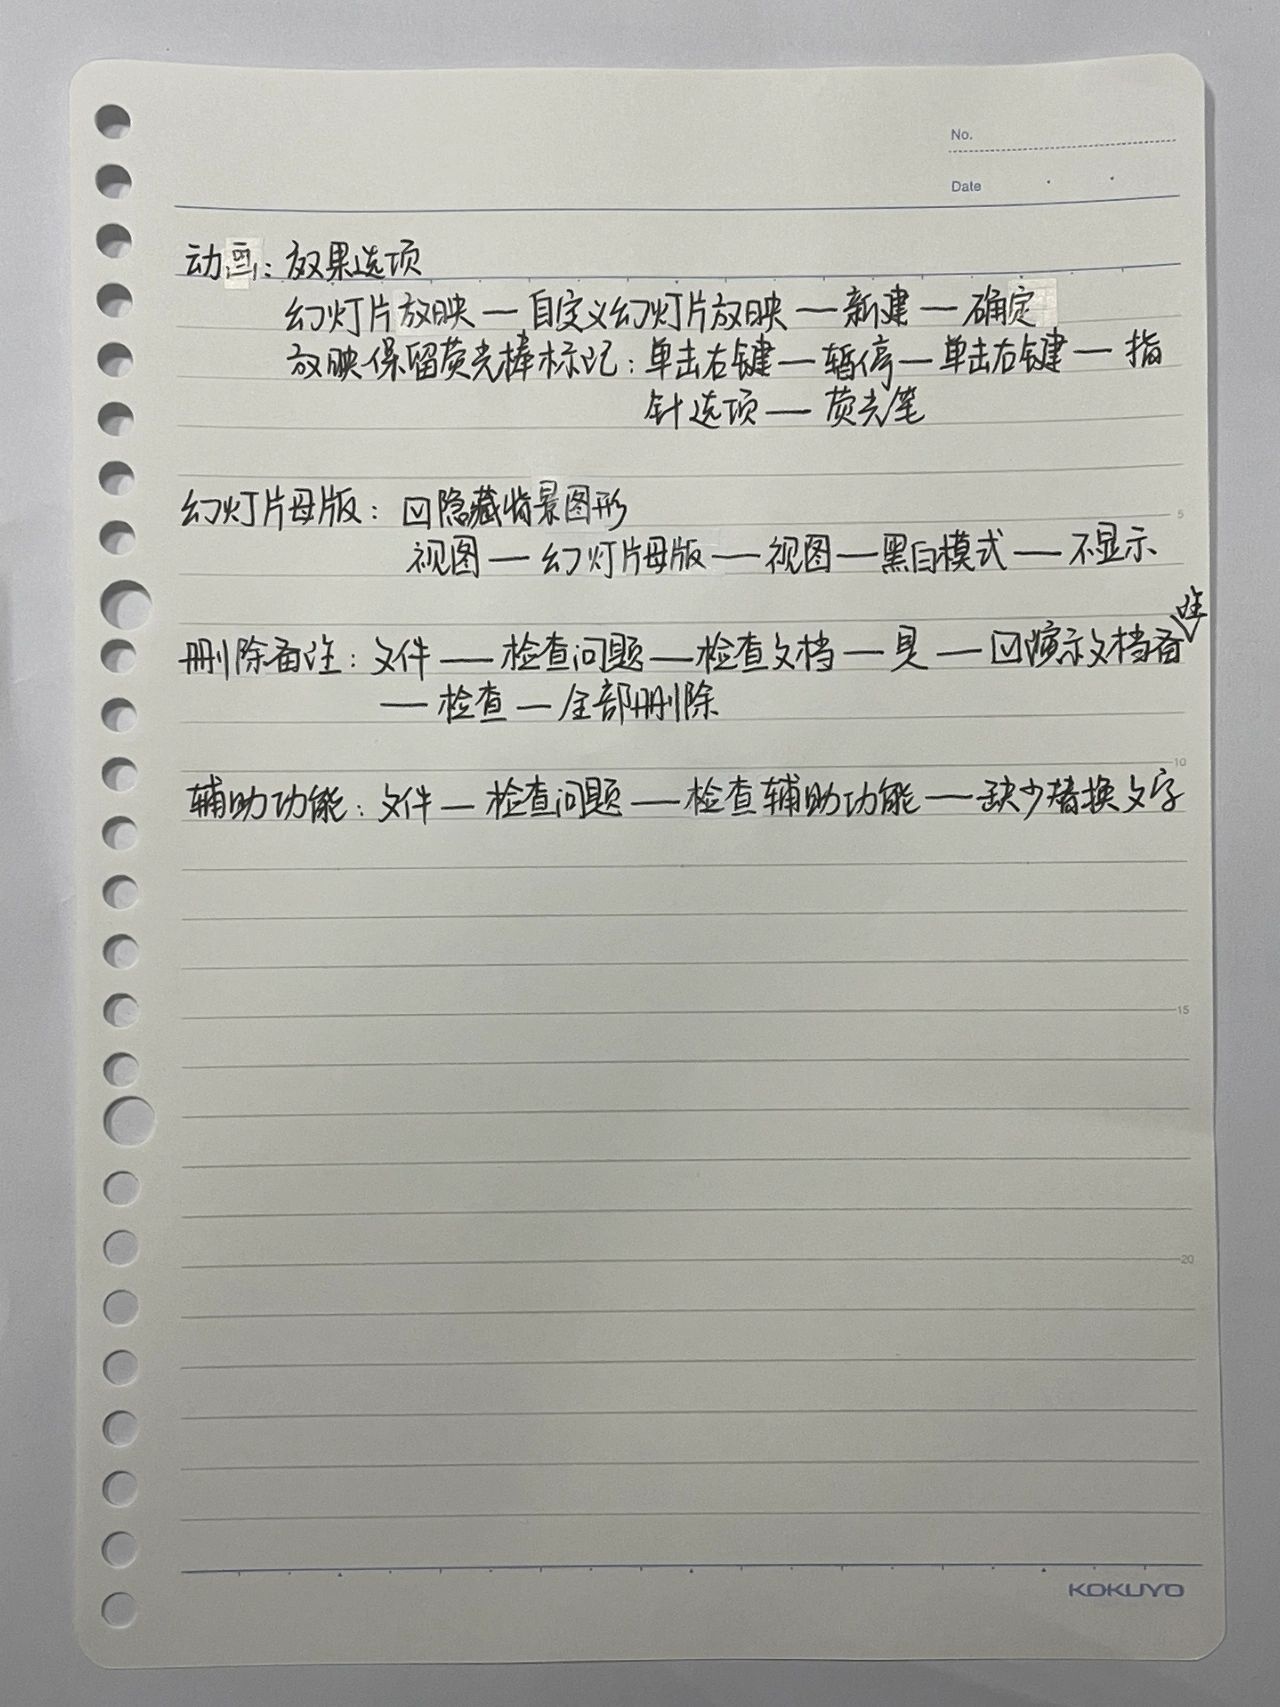 No.
Date
动画：效果选项
幻灯片放映—自定义幻灯片放映—新建—确定
放映保留荧光棒标记：单击右键—暂停—单击右键—指
针选项—荧光笔
幻灯片母版：☑隐藏背景图形
5
视图—幻灯片母版—视图—黑白模式—不显示
删除备注：文件—检查问题—检查文档—是—☑演示文档备注
—检查—全部删除
10
辅助功能：文件—检查问题—检查辅助功能—缺少替换文字
15
20
KOKUYO